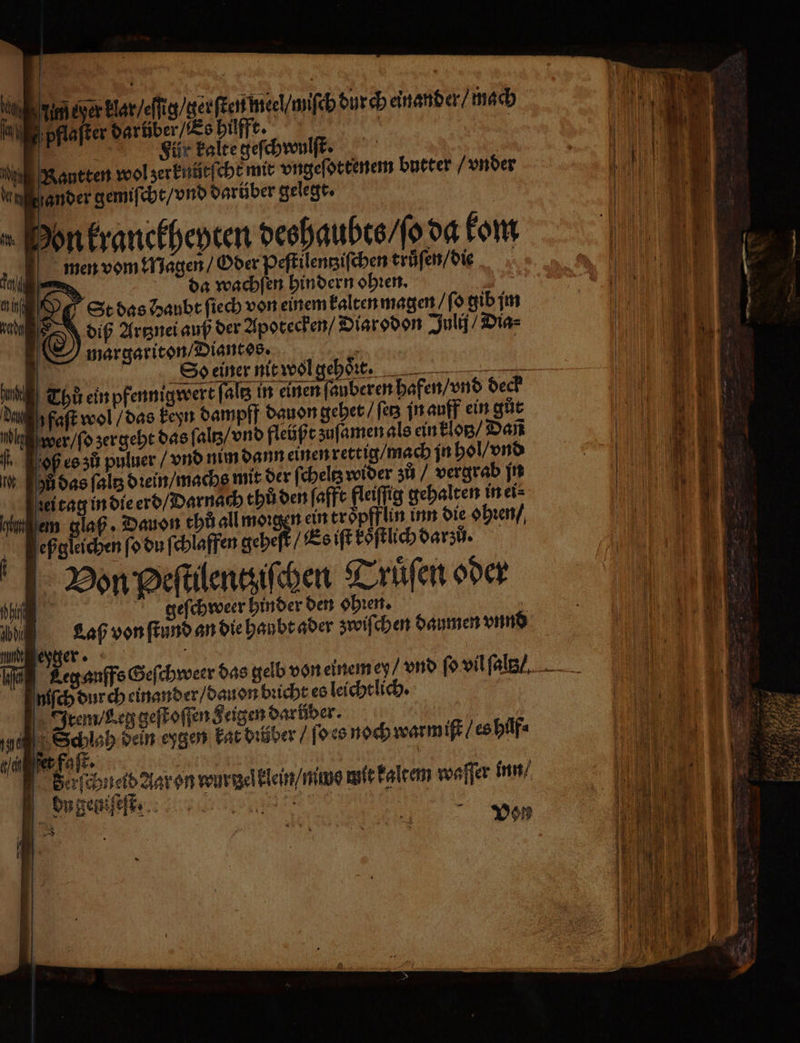 Nim eyer klar/essig/gersten meel/misch durch einander/mach
pflaster darüber/Es hilfft.
Für kalte geschwulst.
Rautten wol zerknütscht mit vngesottenem butter /vnder
ander gemischt/vnd darüber gelegt.
Von kranckheyten deshaubts/so da kom
men vom Magen̄/Oder Pestilentzischen trůsen/die
da wachsen hindern ohren.
St das Haubt siech von einem kalten magen/so gib jm
diß Artznei auß der Apotecken/Diarodon Julij/Dia=
margariton/Diantos.
So einer nit wol gehört.
Thů ein pfennigwert saltz in einen sauberen hafen/vnd deck
fast wol/das keyn dampff dauon gehet/setz jn auff ein gůt
/so zergeht das saltz/vnd fleüßt zusamen als ein klotz/Dañ
es zů puluer/vnd nim dann einen rettig/mach jn hol/vnd
das saltz drein/machs mit der scheltz wider zů/vergrab jn
tag in die erd/Darnach thů den safft fleissig gehalten in ei=
glaß. Dauon thů all morgen ein tröpfflin inn die ohren/
gleichen so du schlaffen gehest/Es ist köstlich darzů.
Von Pestilentzischen Trůsen oder
geschweer hinder den ohren.
Laß von stund an die haubt ader zwischen daumen vnnd
Leg auffs Geschweer das gelb von einem ey/vnd so vil saltz/
misch durch einander/dauon bricht es leichtlich.
Item/Leg gestossen Feigen darüber.
Schlah dein eygen kat drüber/so es noch warm ist/es hilf=
fet fast.
Zerschneid Aaron wurtzel klein/nims mit kaltem wasser inn/
du genisest.
Von